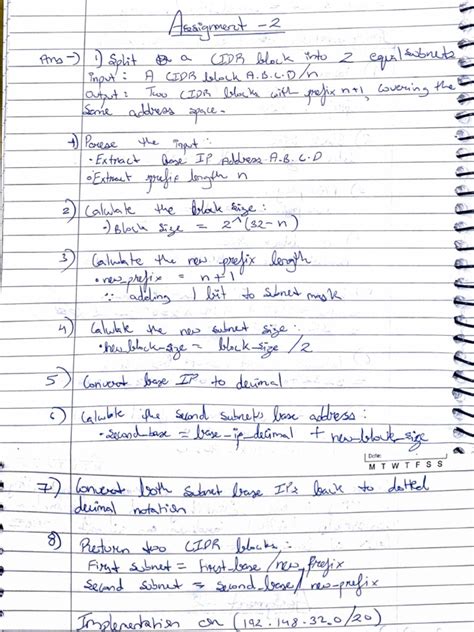 Assignment -2
Ans -> 1) Split a CIDR block into 2 equal subnets
input : A CIDR block A.B.C.D/n
output : Two CIDR blocks with prefix n+1, covering the
same address space.
1) Parse the input :
• Extract base IP Address A.B.C.D
• Extract prefix length n
2) Calculate the block size :
•) Block size = 2^(32-n)
3) Calculate the new prefix length
• new_prefix = n+1
∵ adding 1 bit to subnet mask
4) Calculate the new subnet size :
• new_block_size = block_size /2
5) Convert base IP to decimal
6) Calculate the second subnet's base address :
• second_base = base-ip_decimal + new_block_size
Date:
M T W T F S S
7) Convert both subnet base IPs back to dotted
decimal notation
8) Return two CIDR blocks :
First subnet = first_base /new_prefix
Second subnet = second_base/ new-prefix
Implementation on (192.148.32.0/20)